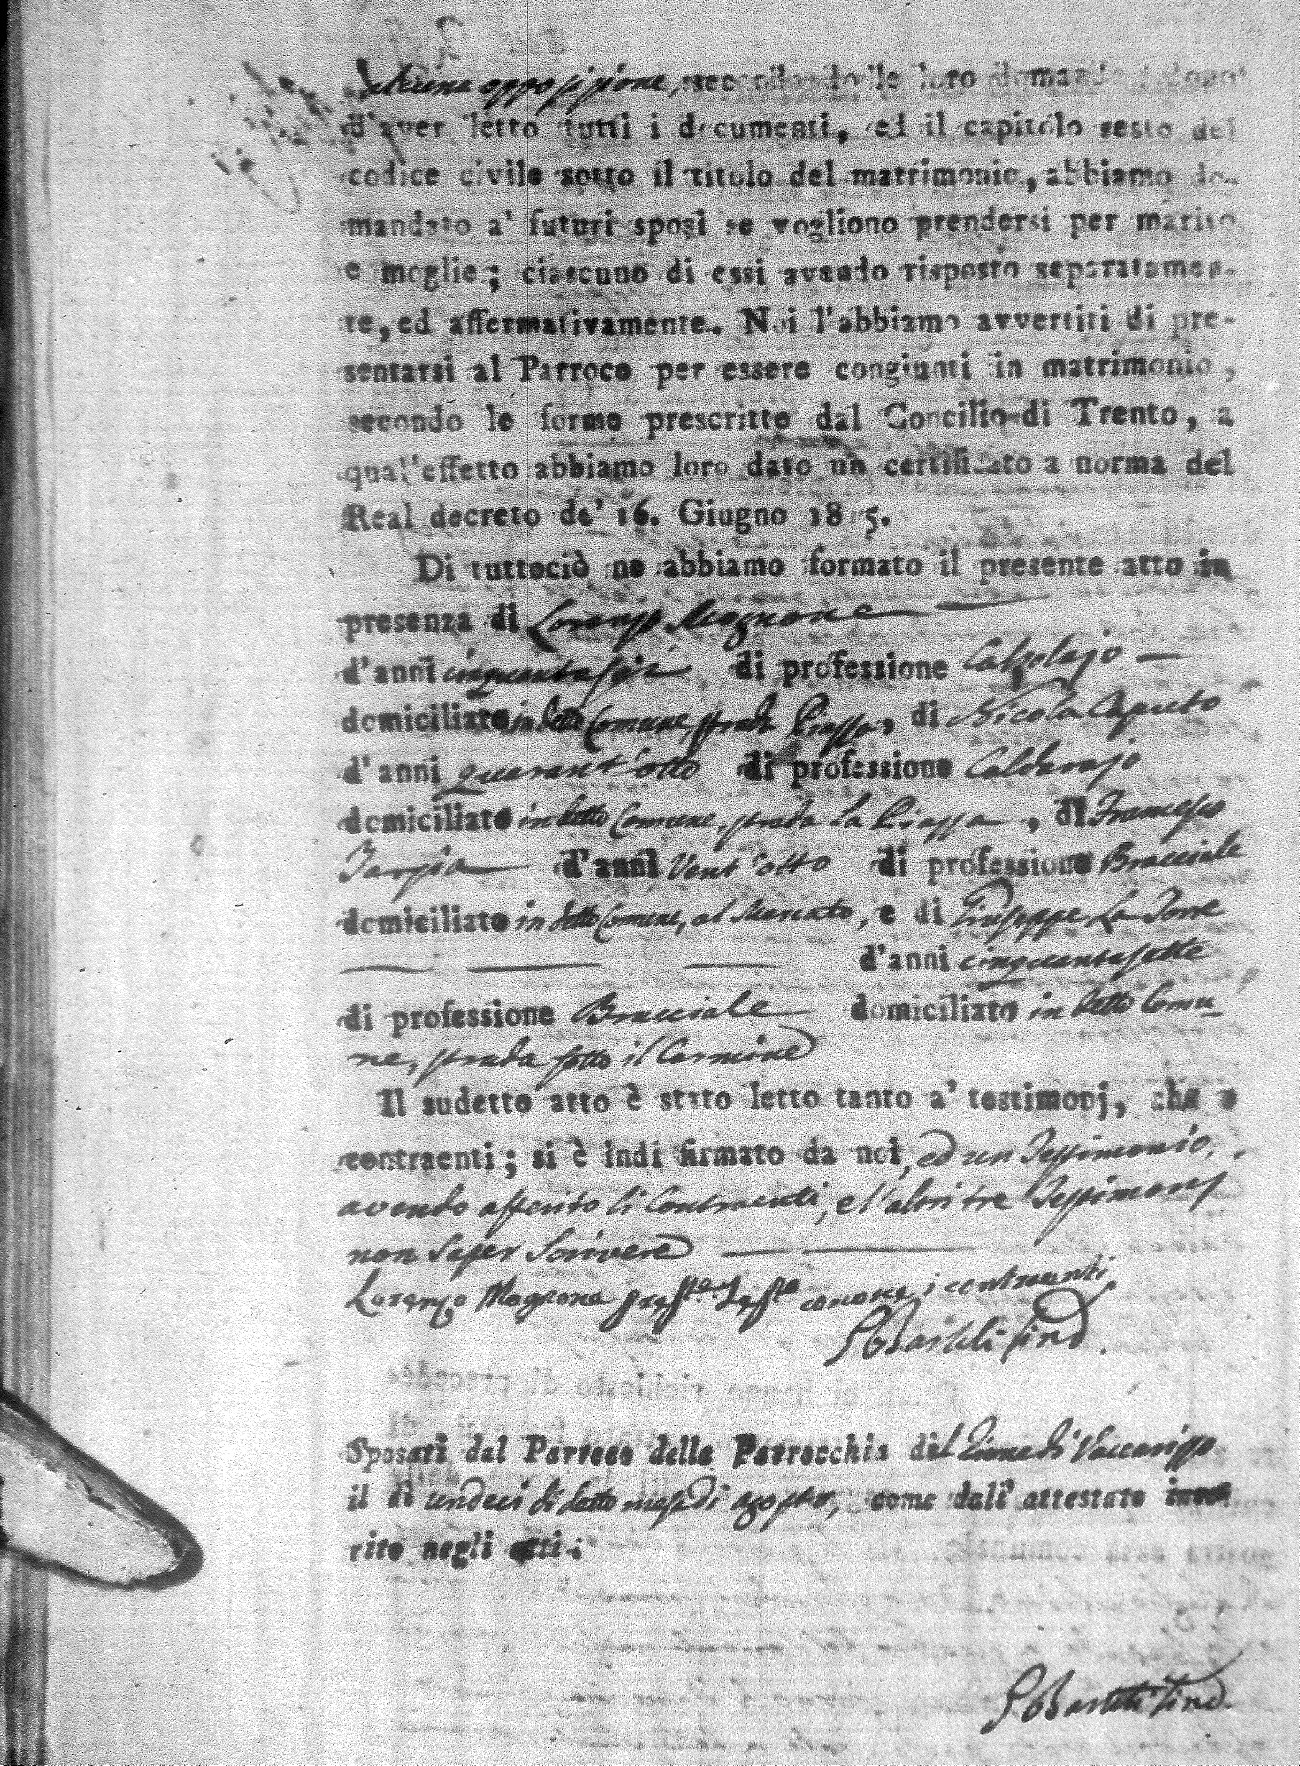 Alcuna opposizione, secondando le loro domande dopo
d'aver letto tutti i documenti, ed il capitolo sesto del
codice civile sotto il titolo del matrimonio, abbiamo do-
mandato a' futuri sposi se vogliono prendersi per marito
e moglie; ciascuno di essi avendo risposto separatamen-
te, ed affermativamente. Noi l'abbiamo avvertiti di pre-
sentarsi al Parroco per essere congiunti in matrimonio,
secondo le forme prescritte dal Concilio di Trento, a
qual'effetto abbiamo loro dato un certificato a norma del
Real decreto de' 16. Giugno 1815.
Di tuttociò ne abbiamo formato il presente atto in
presenza di Lorenzo Magnone
d'anni cinquantasei di professione Calzolajo
domiciliato in detto Comune, strada Piazza, di Nicola Caputo
d'anni quarant'otto di professione Calderajo
domiciliato in detto Comune, strada la Piazza, di Francesco
Tarsia d'anni Vent'otto di professione Bracciale
domiciliato in detto Comune, al Mercato, e di Giuseppe La Torre
d'anni cinquantasette
di professione Bracciale domiciliato in detto Comu-
ne, strada sotto il Carmine
Il sudetto atto è stato letto tanto a' testimonj, che a
contraenti; si è indi firmato da noi, ed un Testimonio,
avendo asserito li Contraenti, e l'altri tre Testimonj
non saper scrivere
Lorenzo Magnone testo conone i contraenti
Bartoli Sind.
Sposati dal Parroco della Parrocchia del di Vaccarizzo
il dì undeci di detto mese di agosto, come dall'attestato inse-
rito negli atti.
Bartoli Sind.